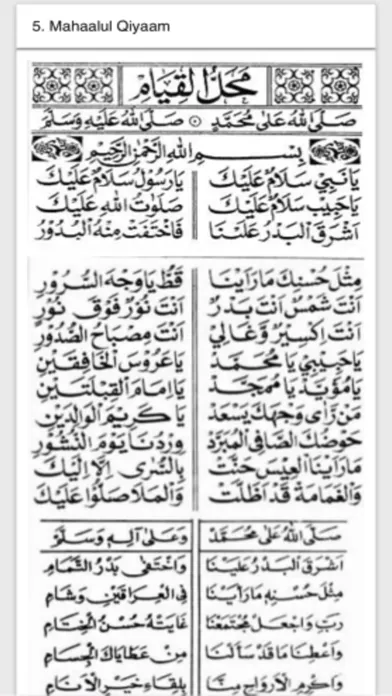 5. Mahaalul Qiyaam
مَحَلُّ الْقِيَامِ
صَلَّى اللهُ عَلَى مُحَمَّدٍ ۞ صَلَّى اللهُ عَلَيْهِ وَسَلَّمَ
بِسْمِ اللهِ الرَّحْمٰنِ الرَّحِيْمِ
يَا نَبِيْ سَلَامْ عَلَيْكَ يَا رَسُوْلْ سَلَامْ عَلَيْكَ
يَا حَبِيْبْ سَلَامْ عَلَيْكَ صَلَوٰتُ اللهِ عَلَيْكَ
اَشْرَقَ الْبَدْرُ عَلَيْنَا فَاخْتَفَتْ مِنْهُ الْبُدُوْرُ
مِثْلَ حُسْنِكَ مَا رَاَيْنَا قَطُّ يَا وَجْهَ السُّرُوْرِ
اَنْتَ شَمْسٌ اَنْتَ بَدْرٌ اَنْتَ نُوْرٌ فَوْقَ نُوْرٍ
اَنْتَ اِكْسِيْرٌ وَّغَالِيْ اَنْتَ مِصْبَاحُ الصُّدُوْرِ
يَا حَبِيْبِيْ يَا مُحَمَّدْ يَا عَرُوْسَ الْخَافِقَيْنِ
يَا مُؤَيَّدْ يَا مُمَجَّدْ يَا اِمَامَ الْقِبْلَتَيْنِ
مَنْ رَاٰى وَجْهَكَ يَسْعَدْ يَا كَرِيْمَ الْوَالِدَيْنِ
حَوْضُكَ الصَّافِى الْمُبَرَّدْ وِرْدُنَا يَوْمَ النُّشُوْرِ
مَا رَاَيْنَا الْعِيْسَ حَنَّتْ بِالسُّرٰى اِلَّا اِلَيْكَ
وَالْغَمَامَةُ قَدْ اَظَلَّتْ وَالْمَلَا صَلُّوْا عَلَيْكَ
صَلَّى اللهُ عَلَى مُحَمَّدْ وَعَلَى اٰلِهِ وَسَلَّمْ
اَشْرَقَ الْبَدْرُ عَلَيْنَا وَاخْتَفَى بَدْرُ التَّمَامِ
مِثْلَ حُسْنِهِ مَا رَاَيْنَا فِى الْعِرَاقَيْنِ وَشَامِ
رَبِّ وَاجْعَلْ مُجْتَمَعْنَا غَايَتُهُ حُسْنُ الْخِتَامِ
وَاَعْطِنَا مَا قَدْ سَاَلْنَا مِنْ عَطَايَاكَ الْجِسَامِ
وَاكْرِمِ الْاَرْوَاحَ مِنَّا بِلِقَاءِ خَيْرِ الْاَنَامِ